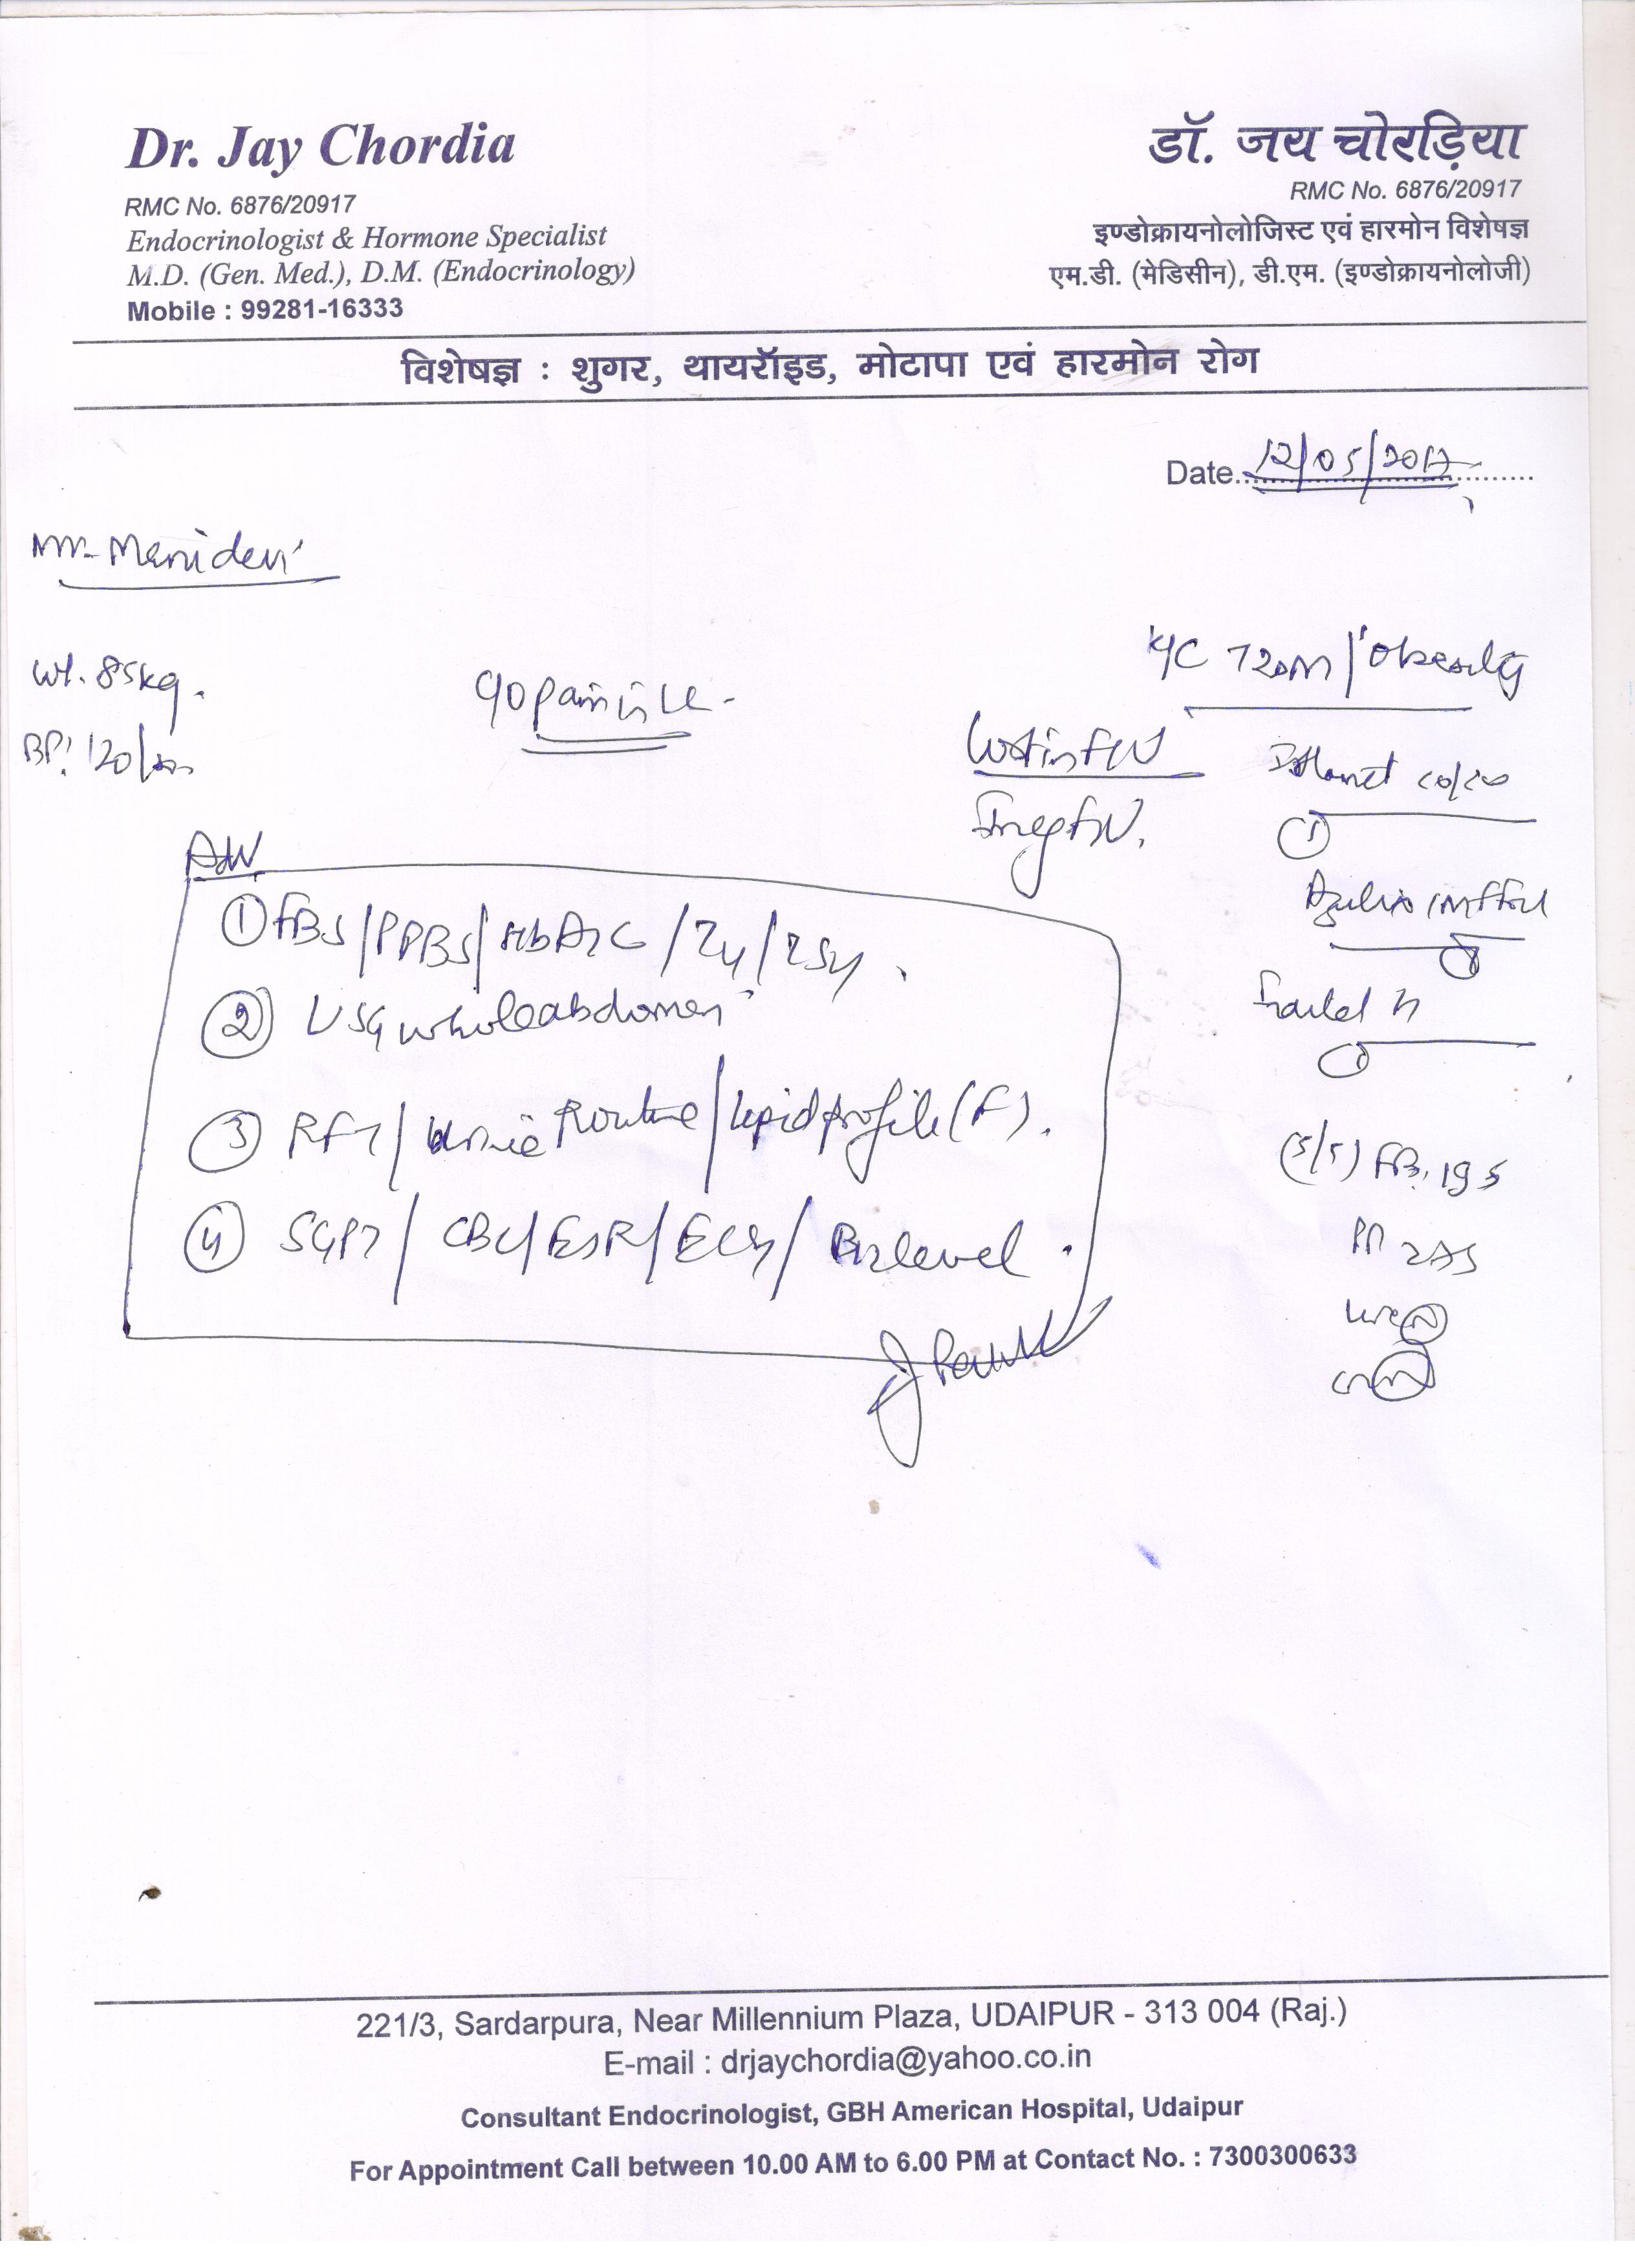 Dr. Jay Chordia
RMC No. 6876/20917
Endocrinologist & Hormone Specialist
M.D. (Gen. Med.), D.M. (Endocrinology)
Mobile : 99281-16333
डॉ. जय चोरड़िया
RMC No. 6876/20917
इण्डोक्रायनोलोजिस्ट एवं हारमोन विशेषज्ञ
एम.डी. (मेडिसीन), डी.एम. (इण्डोक्रायनोलोजी)
विशेषज्ञ : शुगर, थायरॉइड, मोटापा एवं हारमोन रोग
Date 12/05/2017
Mani devi
Wt. 85kg.
BP: 120/
c/o pain in
T2DM / Obesity
Adv
① FBS/PPBS/HbA1c/T4/TSH.
② USG whole abdomen
③ RFT/Urine Routine/lipid profile (F).
④ SGPT/CBC/ESR/ECG/B12 level.
(5/5) FBS 195
PP 225
221/3, Sardarpura, Near Millennium Plaza, UDAIPUR - 313 004 (Raj.)
E-mail : drjaychordia@yahoo.co.in
Consultant Endocrinologist, GBH American Hospital, Udaipur
For Appointment Call between 10.00 AM to 6.00 PM at Contact No. : 7300300633